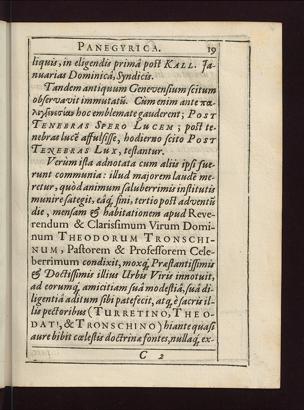 PANEGYRICA. 19
liquis, in eligendis primâ post KALL. Ja-
nuarias Dominicâ, Syndicis.
Tandem antiquum Genevensium scitum
observavit immutatū. Cùm enim ante πα-
λιγγενεσίας hoc emblemate gauderent; POST
TENEBRAS SPERO LUCEM; post te-
nebras lucē affulsisse, hodierno scito POST
TENEBRAS LUX, testantur.
Verùm ista adnotata cum aliis ipsi fue-
runt communia: illud majorem laudē me-
retur, quòd animum saluberrimis institutis
munire sategit, eáq́; fini, tertio post adventū
die, mensam & habitationem apud Reve-
rendum & Clarissimum Virum Domi-
num THEODORUM TRONSCHI-
NUM, Pastorem & Professorem Cele-
berrimum condixit, moxq́; Præstantissimis
& Doctissimis illius Urbis Viris innotuit,
ad eorumq́; amicitiam suâ modestiâ, suâ di-
ligentiâ aditum sibi patefecit, atq́; è sacris il-
lis pectoribus (TURRETINO, THEO-
DATI, & TRONSCHINO) hiante quasi
aure bibit cœlestis doctrinæ fontes, nullaq́; ex-
C 2